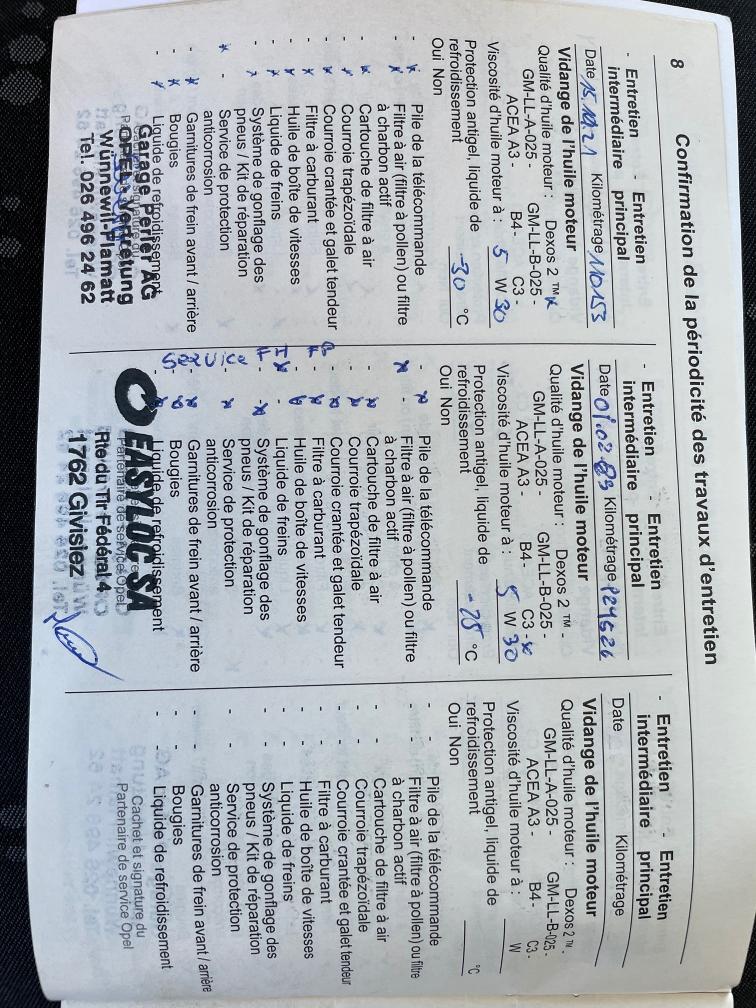 8
Confirmation de la périodicité des travaux d'entretien
- Entretien - Entretien
intermédiaire principal
Date 15.10.21 Kilométrage 110153
Vidange de l'huile moteur
Qualité d'huile moteur : Dexos 2 ™ x
GM-LL-A-025 - GM-LL-B-025 -
ACEA A3 - B4 - C3 -
Viscosité d'huile moteur à : 5 W 30
Protection antigel, liquide de
refroidissement -30 °C
Oui Non
x - Pile de la télécommande
- x Filtre à air (filtre à pollen) ou filtre
à charbon actif
- x Cartouche de filtre à air
- x Courroie trapézoïdale
- x Courroie crantée et galet tendeur
- x Filtre à carburant
- x Huile de boîte de vitesses
- x Liquide de freins
- x Système de gonflage des
pneus / Kit de réparation
x - Service de protection
anticorrosion
- x Garnitures de frein avant / arrière
- x Bougies
- x Liquide de refroidissement
Garage Perler AG
OPEL-Vertretung
Wünnewil-Flamatt
Tel. 026 496 24 62
- Entretien - Entretien
intermédiaire principal
Date Kilométrage 124526
Vidange de l'huile moteur
Qualité d'huile moteur : Dexos 2 ™ -
GM-LL-A-025 - GM-LL-B-025 -
ACEA A3 - B4 - C3 - x
Viscosité d'huile moteur à : 5 W 30
Protection antigel, liquide de
refroidissement -25 °C
Oui Non
- x Pile de la télécommande
x - Filtre à air (filtre à pollen) ou filtre
à charbon actif
- x Cartouche de filtre à air
- x Courroie trapézoïdale
- x Courroie crantée et galet tendeur
- x Filtre à carburant
- x Huile de boîte de vitesses
x - Liquide de freins
- x Système de gonflage des
pneus / Kit de réparation
- x Service de protection
anticorrosion
- x Garnitures de frein avant / arrière
- x Bougies
- x Liquide de refroidissement
Service
EASYLOC SA
Rte du Tir Fédéral 4
1762 Givisiez
- Entretien - Entretien
intermédiaire principal
Date Kilométrage
Vidange de l'huile moteur
Qualité d'huile moteur : Dexos 2 ™ -
GM-LL-A-025 - GM-LL-B-025 -
ACEA A3 - B4 - C3 -
Viscosité d'huile moteur à : W
Protection antigel, liquide de
refroidissement °C
Oui Non
- - Pile de la télécommande
- - Filtre à air (filtre à pollen) ou filtre
à charbon actif
- - Cartouche de filtre à air
- - Courroie trapézoïdale
- - Courroie crantée et galet tendeur
- - Filtre à carburant
- - Huile de boîte de vitesses
- - Liquide de freins
- - Système de gonflage des
pneus / Kit de réparation
- - Service de protection
anticorrosion
- - Garnitures de frein avant / arrière
- - Bougies
- - Liquide de refroidissement
Cachet et signature du
Partenaire de service Opel